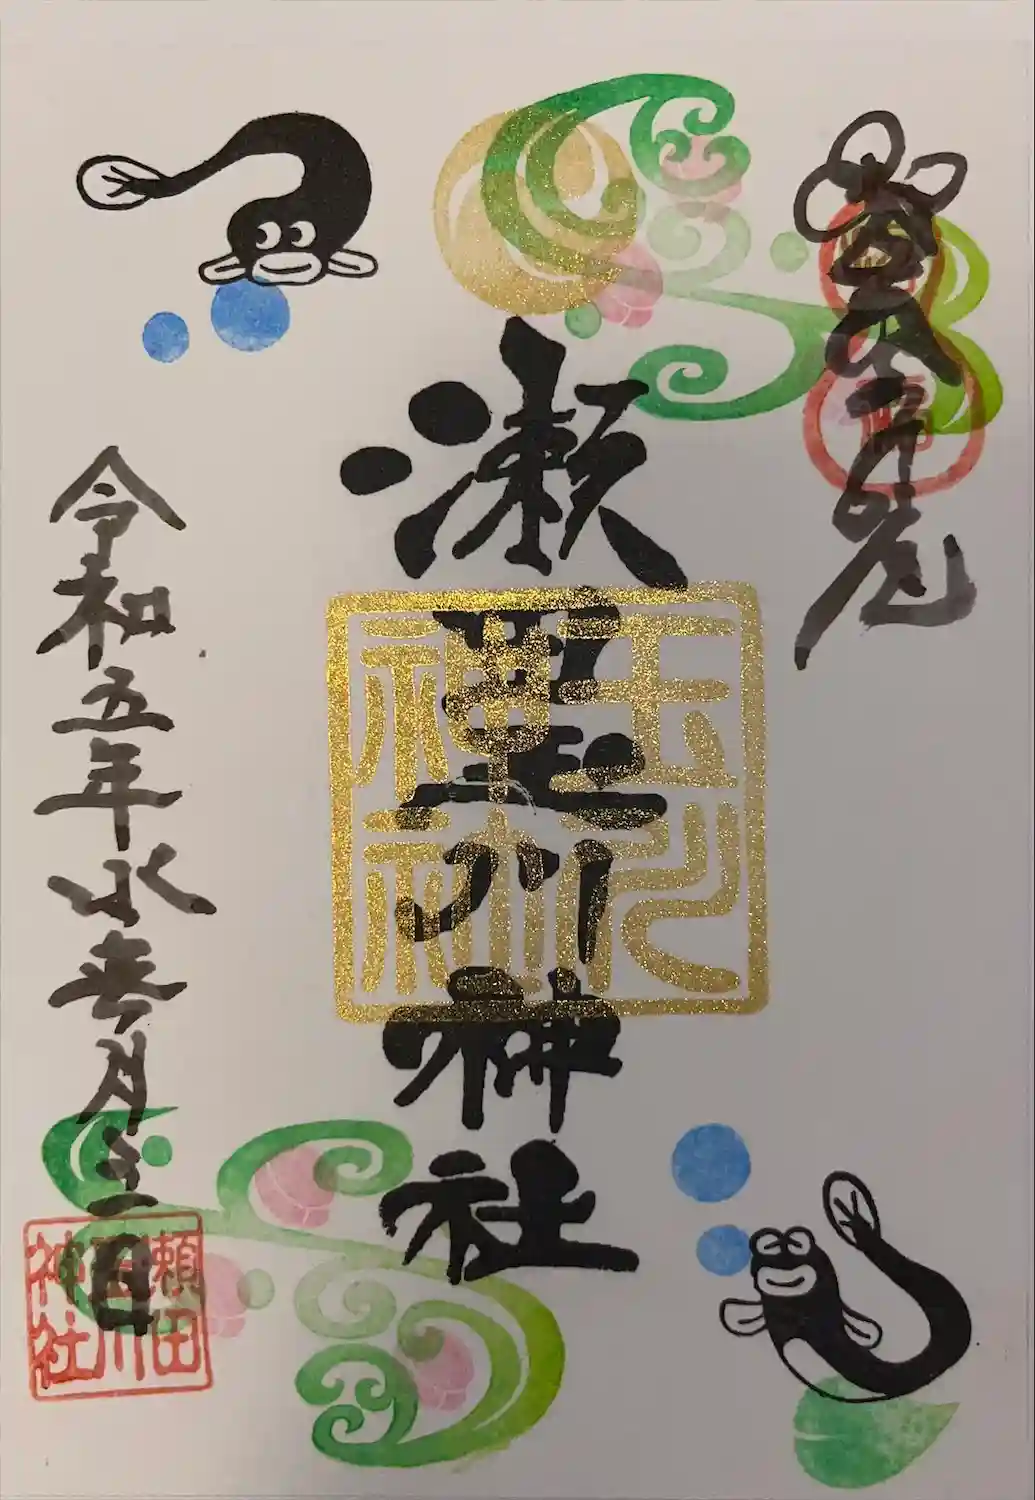 瀬田玉川神社
玉川
神社
令和五年水無月三日
瀬田
玉川
神社